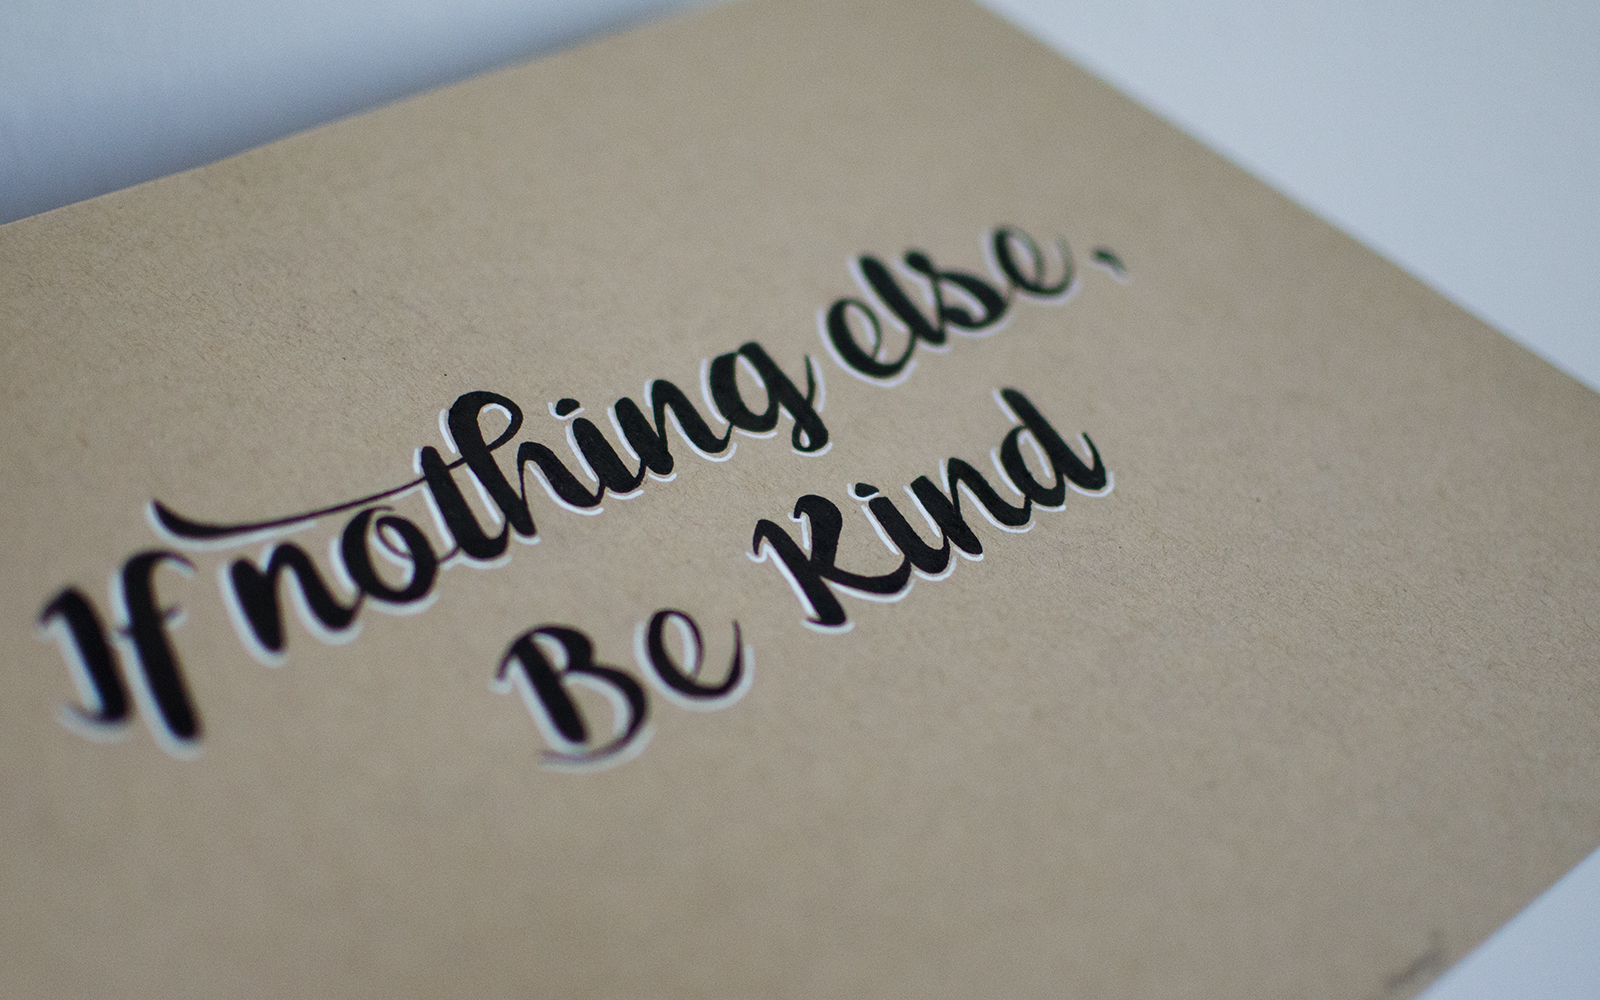 If nothing else,
Be Kind